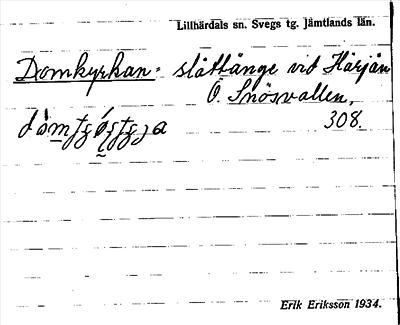 Lillhärdals sn. Svegs tg. Jämtlands län.
Domkyrkan: slåttänge vid Härjån
Ö. Snösvallen.
308.
Erik Eriksson 1934.